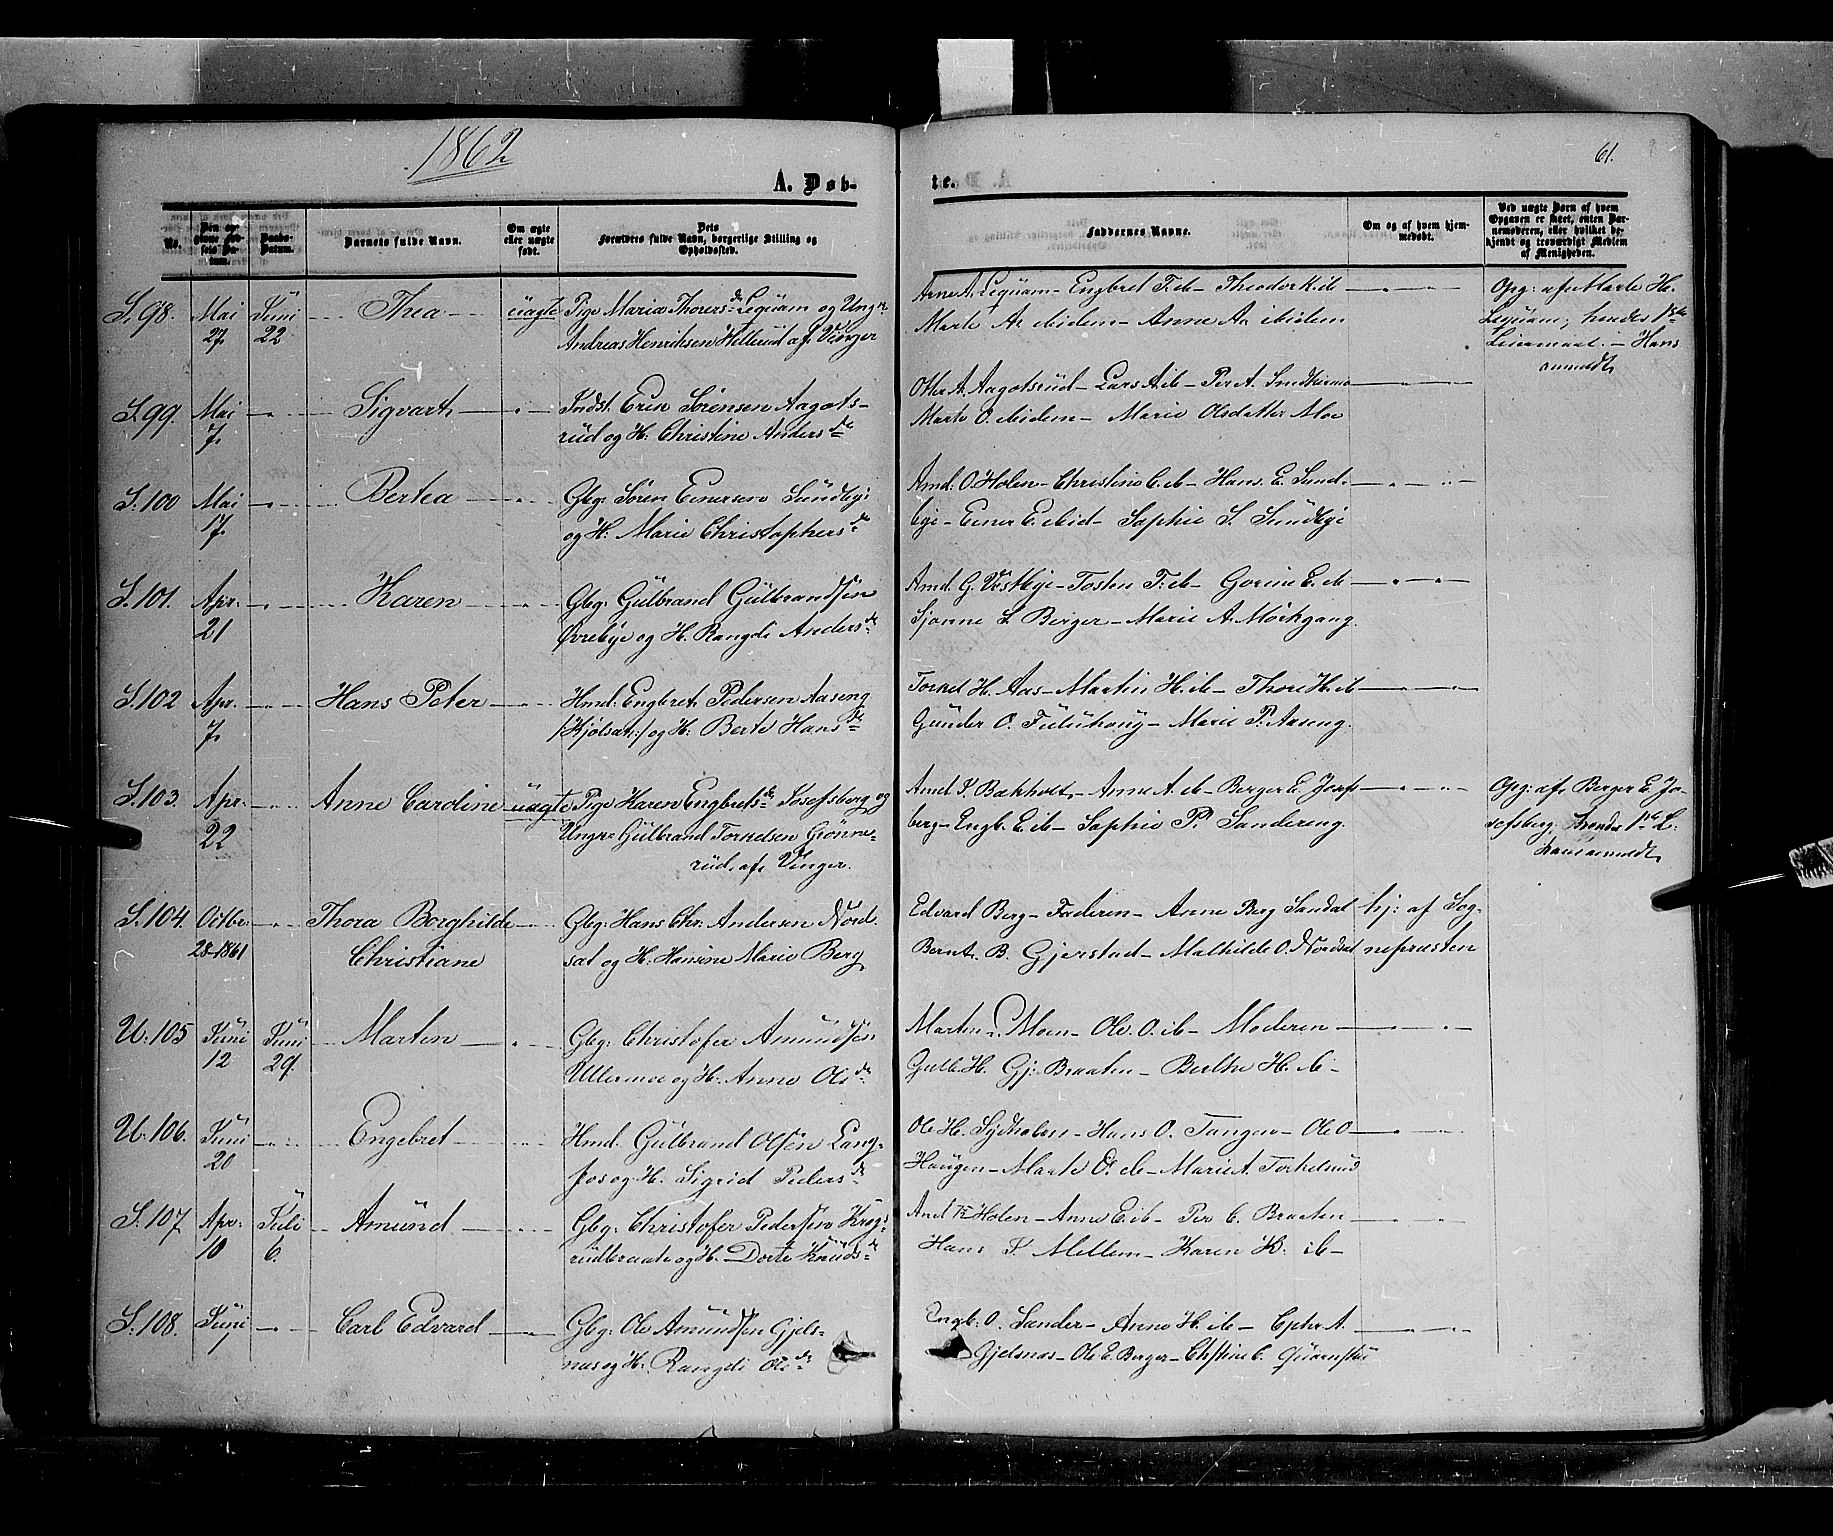 1862
61.
A. Døb-
te.
No.
Barnets fulde Navn.
Om ægte
eller uægte
født.
Dets
Forældres fulde Navn, borgerlige Stilling og
Opholdssted.
Faddernes Navne.
Om og af hvem hjem-
medøbt.
Ved uægte Børn af hvem
Opgaven er skeet, enten Bar-
nemoderen, eller hvilket be-
kjendt og troværdigt Medlem
af Menigheden.
S. 98. Mai Juni Thea uægte Pige Maria Thorersd. Leqvam og Ungk.
27. 22 Andreas Henriksen Hellerud af Vinger
Arne A. Leqvam - Engbret T. ib - Theodor K. ib
Marte A. ibidem - Anne A. ibidem
Opg: af Marte H.
Leqvam; hendes 1ste
Leiermaal. - Hans
anmeldt
S. 99. Mai Sigvart Indst. Even Sørensen Aagots-
7. rud og H: Christine Andersd.
Otter A. Aagotsrud - Lars A. ib - Per A.
Marte O. ibidem - Marie Olsdatter Moe
S. 100 Mai Bertea Gbg: Søren Evensen Sundbye
17. og H: Marie Christophersd.
Amd: O. Holen - Christine E. ib - Hans E. Sund-
bye - Even E. ibid - Sophie S. Sundbye
S. 101. Apr. Karen Gbg: Gulbrand Gulbrandsen
21 Øvrebye og H. Rangdi Andersd.
Amd. G. Vestbye - Tosten T. ib - Gorine E. ib
Sjønne L. Berger - Marie A. Mørkgang.
S. 102 Apr. Hans Peter Hmd. Engbret Pedersen Aaseng
7. /Kjølsæt:/ og H: Berte Hansd.
Torkel H. Aas - Martin H. ib - Thore H. ib
Gunder O. Fuluhoug - Marie P. Aaseng.
S. 103. Apr. Anne Caroline uægte Pige Karen Engbretsd. Josefsberg og
22 Ungk. Gulbrand Torkelsen Gronne-
rud. af Vinger.
Amd P. Bækholt - Anne A. ib - Berger E. Josefs
berg - Engb. E. ib - Sophie P. Sandereng.
Opg: af Berger E. Jo-
sefsberg. hendes 1ste L.
Hans anmeldt
S. 104. Octbr. Thora Borghilde Gbg: Hans Chr. Andersen Nord
28-1861 Christiane sæt og H: Hansine Marie Berg
Edvard Berg - Faderen - Anne Berg Sandat
Bernt. B. Gjerstad - Mathilde O. Nordsæt
hj: af Sog-
nepræsten
U. 105 Juni Juni Marten Gbg: Christofer Amundsen
12 29. Ullermoe og H: Anne Olsd.
Marten Moen - Ole O. ib - Moderen
Gulb. H. Gj: Braaten - Berthe H. ib -
U. 106. Juni Engebret Hmd. Gulbrand Olsen Lang-
20 fos og H. Sigrid Pedersd.
Ole H. Sydholen - Hans O. Tangen - Ole O
Haugen - Marte O. ib - Marie A. Torkelsrud
S. 107. Apr. Juli Amund Gbg: Christofer Pedersen Krogs-
10 6. rudbraate og H. Dorte Knudsd.
Amd K Holen - Anne E. ib - Per C. Braaten
Hans P. Mellem - Karen H. ib -
S. 108. Juni Carl Edvard Gbg: Ole Amundsen Gjels-
1 næs og H: Rangdi Olsd.
Engb: O. Sander - Anne H. ib - Cphr A.
Gjelsnæs - Ole E. Berger - Chstine C. Qværnstu